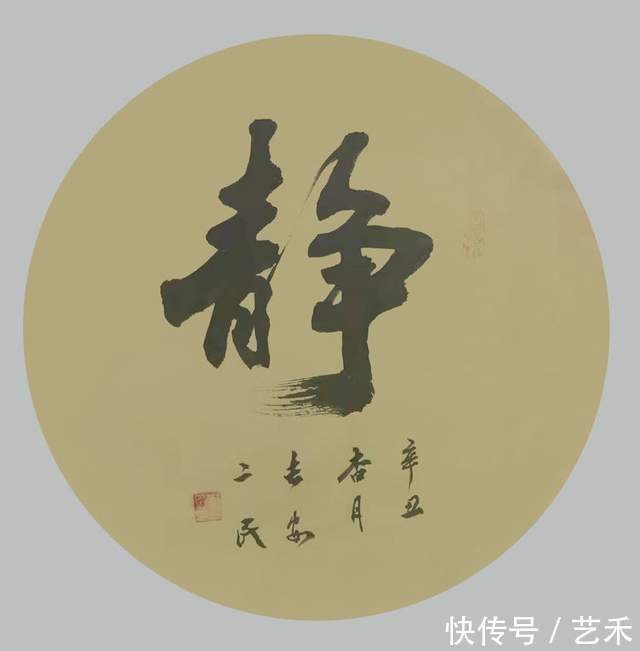 静
辛丑
杏月
安
二民
快传号 / 艺禾